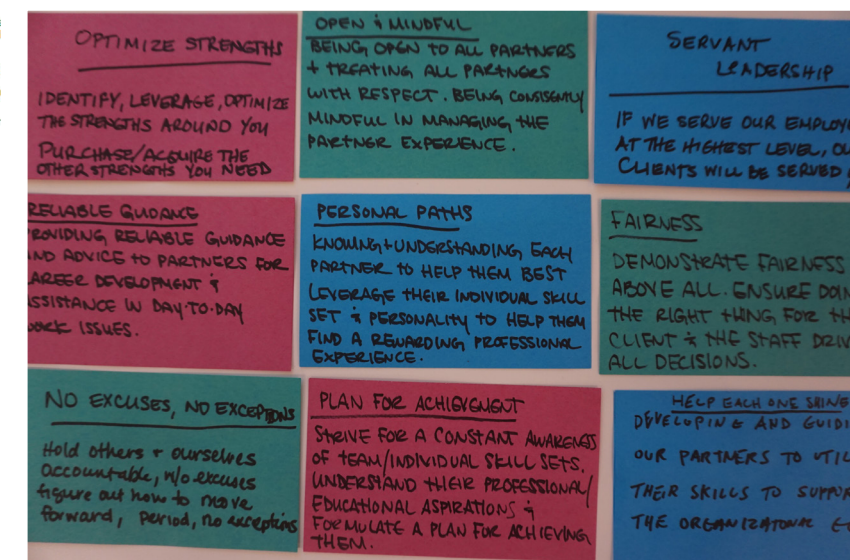 OPTIMIZE STRENGTHS
IDENTIFY, LEVERAGE, OPTIMIZE
THE STRENGTHS AROUND YOU
PURCHASE/ACQUIRE THE
OTHER STRENGTHS YOU NEED
OPEN & MINDFUL
BEING OPEN TO ALL PARTNERS
+ TREATING ALL PARTNERS
WITH RESPECT. BEING CONSISENTLY
MINDFUL IN MANAGING THE
PARTNER EXPERIENCE.
SERVANT
LEADERSHIP
IF WE SERVE OUR EMPLOY
AT THE HIGHEST LEVEL, OU
CLIENTS WILL BE SERVED
RELIABLE GUIDANCE
ROVIDING RELIABLE GUIDANCE
ND ADVICE TO PARTNERS FOR
AREER DEVELOPMENT &
SSISTANCE IN DAY-TO-DAY
WORK ISSUES.
PERSONAL PATHS
KNOWING + UNDERSTANDING EACH
PARTNER TO HELP THEM BEST
LEVERAGE THEIR INDIVIDUAL SKILL
SET & PERSONALITY TO HELP THEM
FIND A REWARDING PROFESSIONAL
EXPERIENCE.
FAIRNESS
DEMONSTRATE FAIRNESS
ABOVE ALL. ENSURE DOIN
THE RIGHT THING FOR TH
CLIENT & THE STAFF DRIV
ALL DECISIONS.
NO EXCUSES, NO EXCEPTIONS
Hold others + ourselves
accountable, w/o excuses
figure out how to move
forward, period, no exceptions
PLAN FOR ACHIEVEMENT
STRIVE FOR A CONSTANT AWARENESS
OF TEAM/INDIVIDUAL SKILL SETS.
UNDERSTAND THEIR PROFESSIONAL/
EDUCATIONAL ASPIRATIONS &
FORMULATE A PLAN FOR ACHIEVING
THEM.
HELP EACH ONE SHINE
DEVELOPING AND GUIDI
OUR PARTNERS TO UTIL
THEIR SKILLS TO SUPPOR
THE ORGANIZATONAL